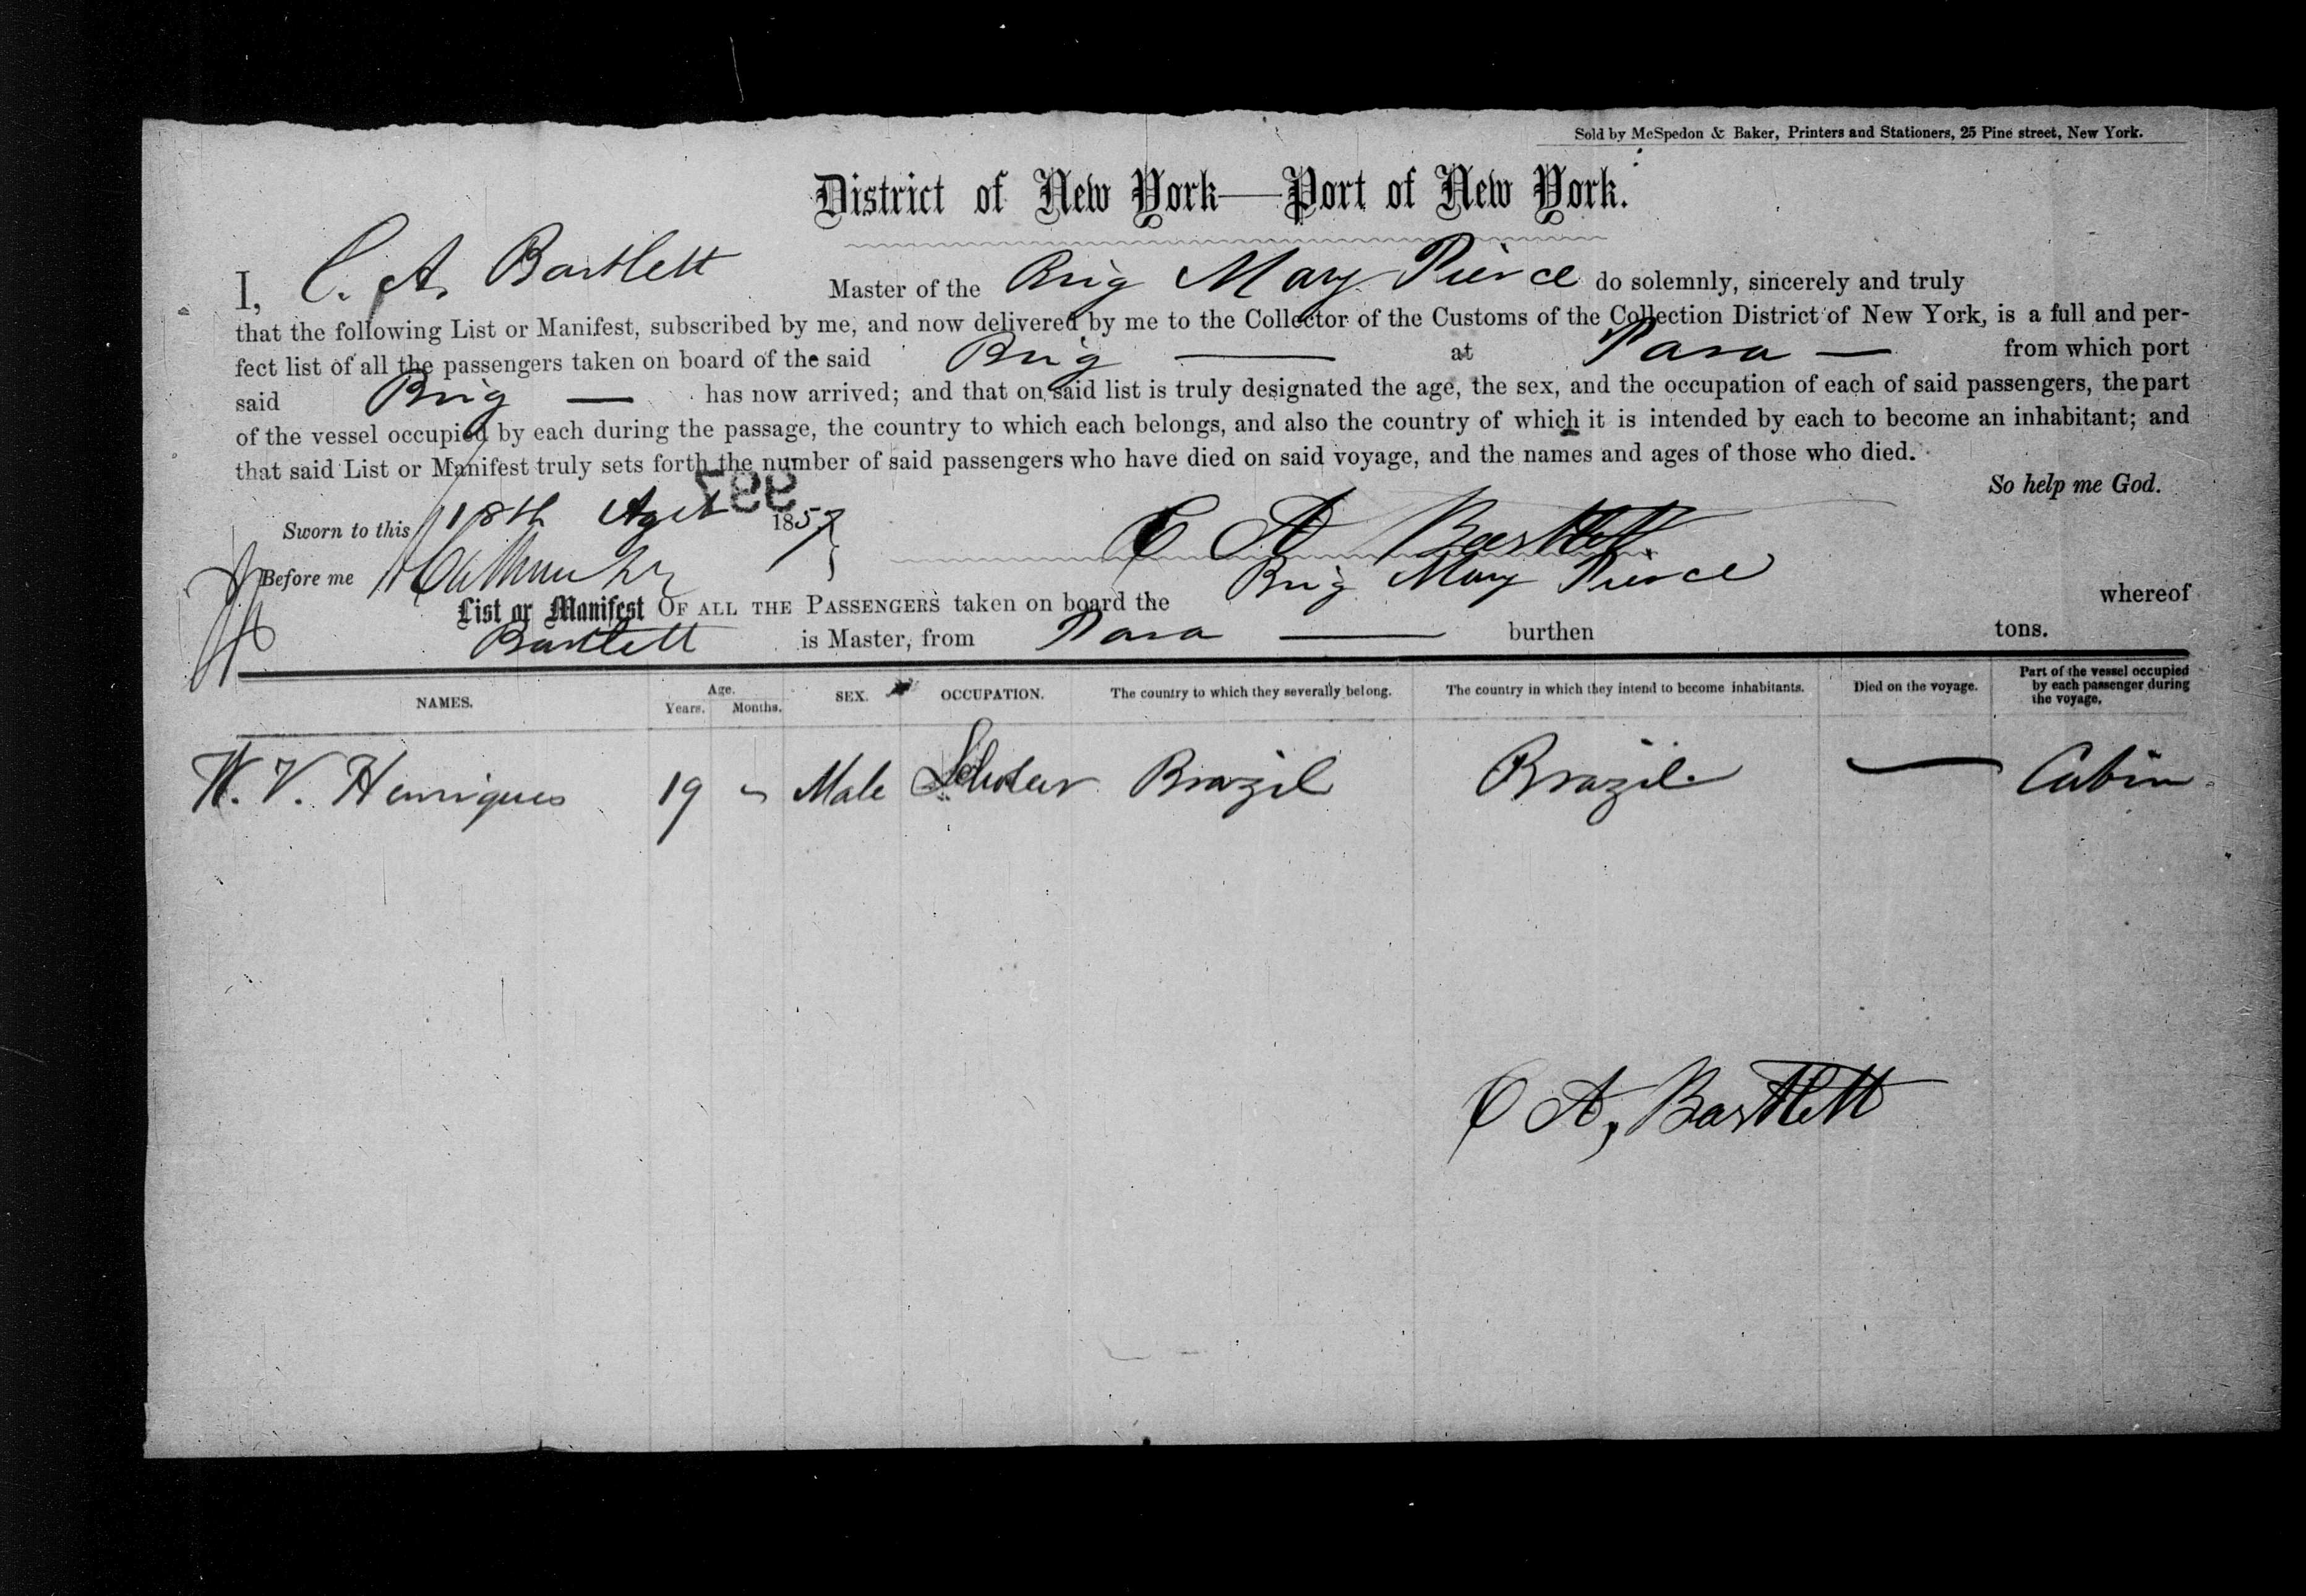 Sold by McSpedon & Baker, Printers and Stationers, 25 Pine street, New York.
District of New York—Port of New York.
I, C. A. Bartlett Master of the Brig Mary Pierce do solemnly, sincerely and truly
that the following List or Manifest, subscribed by me, and now delivered by me to the Collector of the Customs of the Collection District of New York, is a full and per-
fect list of all the passengers taken on board of the said Brig — at Para — from which port
said Brig — has now arrived; and that on said list is truly designated the age, the sex, and the occupation of each of said passengers, the part
of the vessel occupied by each during the passage, the country to which each belongs, and also the country of which it is intended by each to become an inhabitant; and
that said List or Manifest truly sets forth the number of said passengers who have died on said voyage, and the names and ages of those who died.
So help me God.
997
Sworn to this 18th 1857 C A Bartlett
Before me
List or Manifest OF ALL THE PASSENGERS taken on board the Brig Mary Pierce whereof
Bartlett is Master, from Para — burthen tons.
NAMES. Age. Years. Months. SEX. OCCUPATION. The country to which they severally belong. The country in which they intend to become inhabitants. Died on the voyage. Part of the vessel occupied by each passenger during the voyage.
W. V. Henriques 19 Male Scholar Brazil Brazil — Cabin
C A, Bartlett